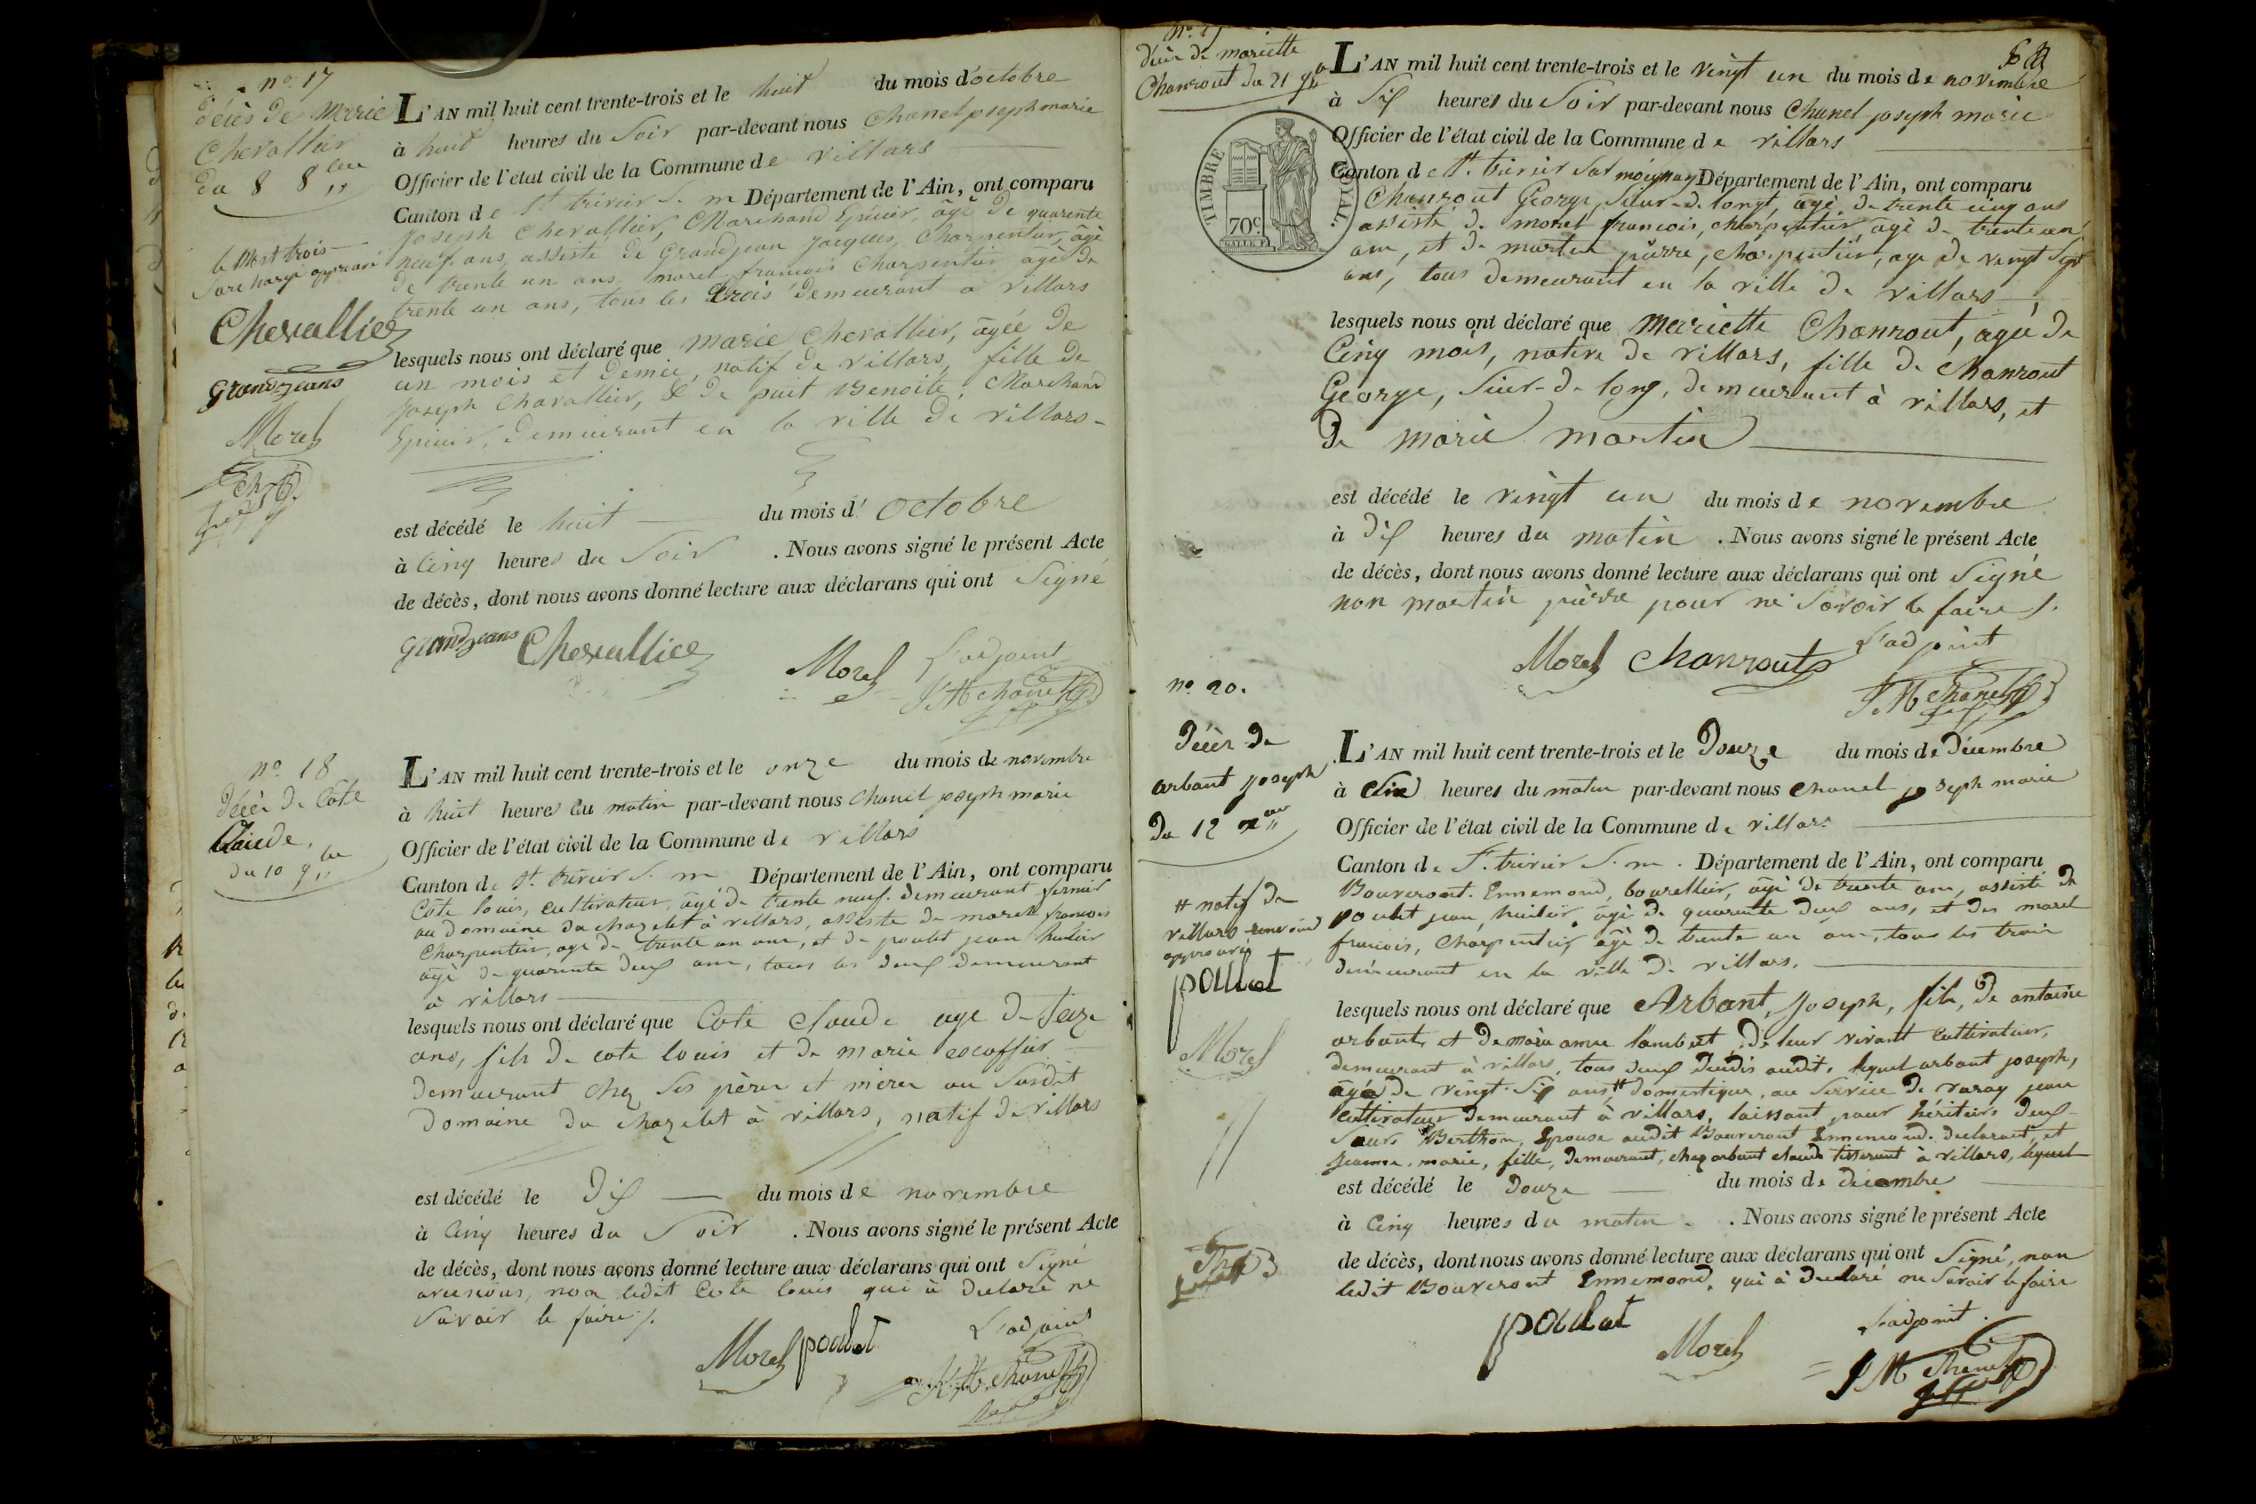 no 17
décès de Marie
Chevallier
du 8 8bre
le Mot trois
surchargé approuvé
Chevallier
Grandjeans
Morel
L'AN mil huit cent trente-trois et le huit du mois d'octobre
à huit heures du Soir par-devant nous Chanel joseph marie
Officier de l'état civil de la Commune de villars
Canton de St trivier S. m Département de l'Ain, ont comparu
joseph Chevallier, Marchand Epicier, âgé de quarente
neuf ans, assisté de Grandjean jacques, Charpentier, âgé
de trente un ans, morel françois Charpentier âgé de
trente un ans, tous les trois demeurant a villars
lesquels nous ont déclaré que marie Chevallier, âgée de
un mois et demie, natif de villars, fille de
joseph Chavallier, & de puit Benoite, Marchand
Epicier, demeurant en la ville de villars
est décédé le huit du mois d'octobre
à Cinq heures du Soir . Nous avons signé le présent Acte
de décès, dont nous avons donné lecture aux déclarans qui ont Signé
Grandjeans Chevallier Morel L'adjoint
J M Chanel
no 18
Décès de Cote
Claude,
du 10 9bre
L'AN mil huit cent trente-trois et le onze du mois de novembre
à huit heures du matin par-devant nous Chanel joseph marie
Officier de l'état civil de la Commune de villars
Canton de St. trivier S. m Département de l'Ain, ont comparu
Cote louis, cultivateur, âgé de trente neuf demeurant fermier
au domaine du chazelet à villars, assisté de morel françois
Charpentier, age de trente un ans, et de poulet jean huilier
âgé de quarente deux ans, tous les deux demeurant
à villars
lesquels nous ont déclaré que Cote Claude age de seize
ans, fils de cote louis et de marie escoffier
demeurant chez ses père et mère au susdit
domaine du chazelet à villars, natif de villars
est décédé le Dix du mois de novembre
à Cinq heures du Soir . Nous avons signé le présent Acte
de décès, dont nous avons donné lecture aux déclarans qui ont Signé
avec nous, non ledit Cote louis qui à déclaré ne
Savoir le faire ./.
Morel poulet L'adjoint
J M Chanel
décès de mariette
Chanrout du 21 9bre
TIMBRE ROYAL
70c
L'AN mil huit cent trente-trois et le vingt un du mois de novembre
à Six heures du Soir par-devant nous Chanel joseph marie
Officier de l'état civil de la Commune de villars
Canton de St. trivier Sur moignan Département de l'Ain, ont comparu
Chanrout George, Sieur-de-longt, âgé de trente cinq ans
assisté de morel françois, charpentier, âgé de trente un
ans, et de martin pierre, charpentier, age de vingt Sept
ans, tous demeurant en la ville de villars
lesquels nous ont déclaré que Mariette Chanrout, agée de
Cinq mois, native de villars, fille de Chanrout
George, Sieur-de-long, demeurant à villars, et
de marie martin
est décédé le vingt un du mois de novembre
à dix heures du matin . Nous avons signé le présent Acte
de décès, dont nous avons donné lecture aux déclarans qui ont Signé
non martin pierre pour ne Savoir le faire ./.
Morel Chanrout L'adjoint
J M Chanel
no 20.
Décès de
arbant joseph
du 12 xbre
# natif de
villars
approuvé
poulet
Morel
L'AN mil huit cent trente-trois et le Douze du mois de Décembre
à Six heures du matin par-devant nous Chanel joseph marie
Officier de l'état civil de la Commune de villars
Canton de St. trivier S. m. Département de l'Ain, ont comparu
Bouveront Ennemond, bourellier, âgé de trente ans, assisté de
poulet jean, huilier, âgé de quarente deux ans, et de morel
francois, Charpentier, âgé de trente un ans, tous les trois
demeurant en la ville de villars.
lesquels nous ont déclaré que Arbant, joseph, fils, de antoine
arbant, et de marie anne lambert, de leur vivant Cultivateur,
demeurant à villars, tous deux décédés audit, lequel arbant joseph,
âgé de vingt-six ans # domestique, au Service de varay jean
Cultivateur demeurant à villars, laissant pour héritiers deux
Sœurs Berthon, Epouse audit Bouveront Ennemond déclarant, et
jeanne, marie, fille, demeurant, chez arbant claude tisserant à villars, lequel
est décédé le Douze du mois de décembre
à Cinq heures du matin . Nous avons signé le présent Acte
de décès, dont nous avons donné lecture aux déclarans qui ont Signé, non
ledit Bouveront Ennemond, qui à déclaré ne Savoir le faire
poulet Morel L'adjoint
J M Chanel